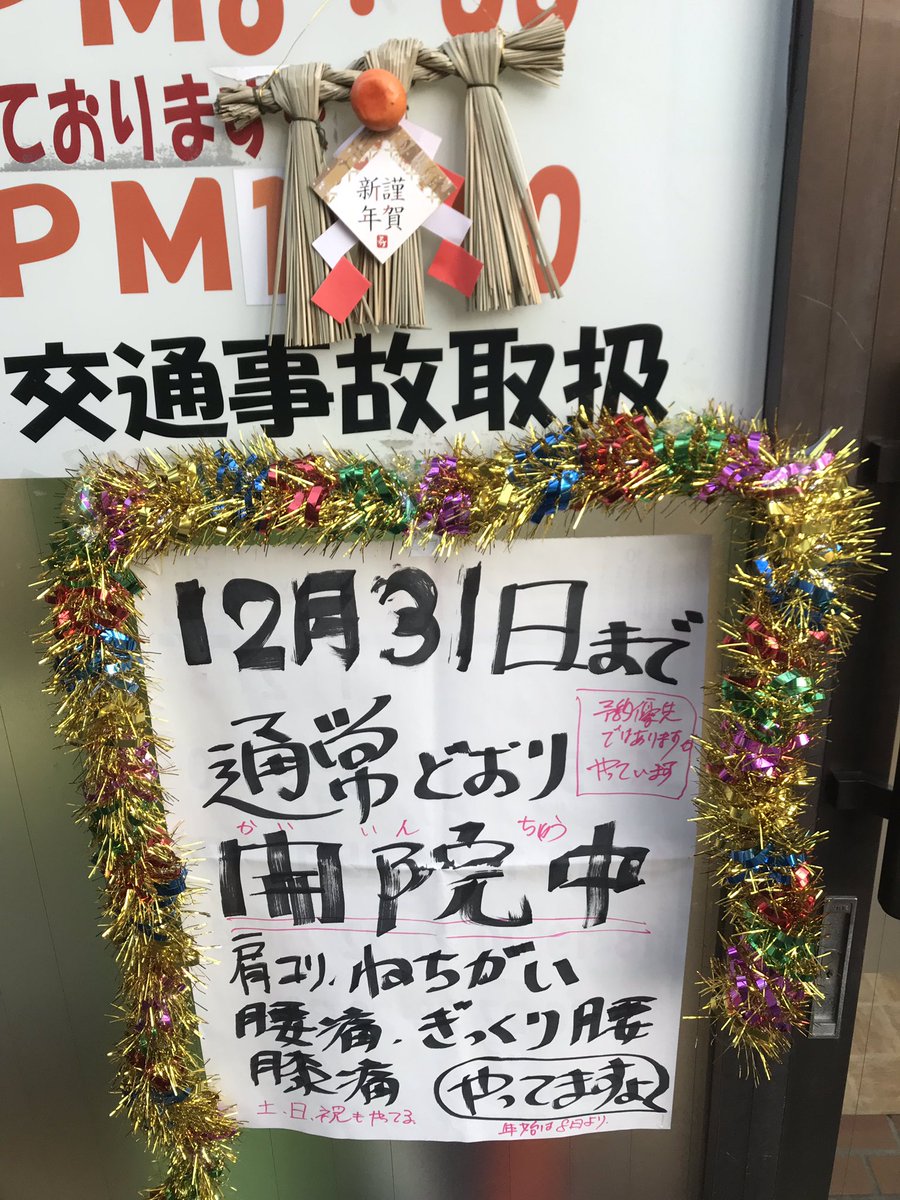 PM8:00
ております
謹賀
新年
PM1 0
交通事故取扱
12月31日まで
予約優先
ではあります。
やっています
通常どおり
かい いん ちゅう
開院中
肩コリ、ねちがい
腰痛、ぎっくり腰
膝痛 やってますよ
土、日、祝もやってる
年始は8日より